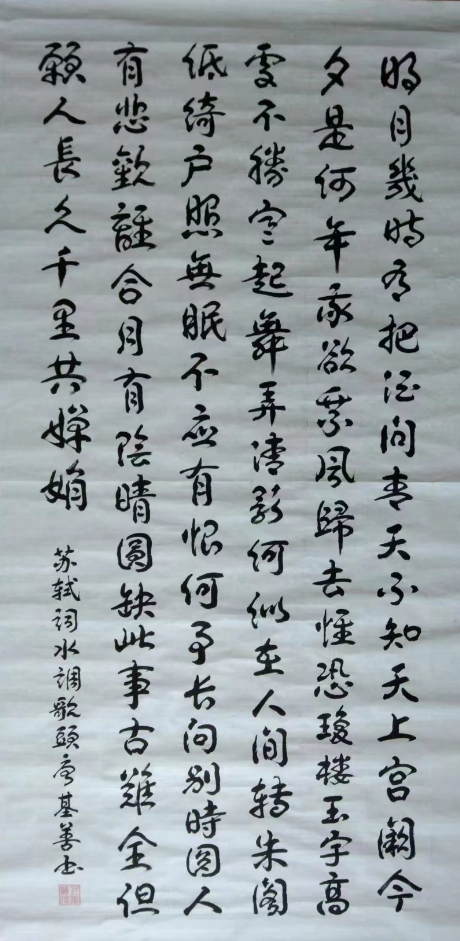 明月幾時有把酒问青天不知天上宫闕今
夕是何年我欲乘風歸去惟恐瓊楼玉宇高
處不勝寒起舞弄清影何似在人间轉朱阁
低綺户照無眠不應有恨何事长向别時圆人
有悲歡離合月有陰晴圓缺此事古難全但
願人長久千里共嬋娟
苏轼词水調歌頭唐基善书